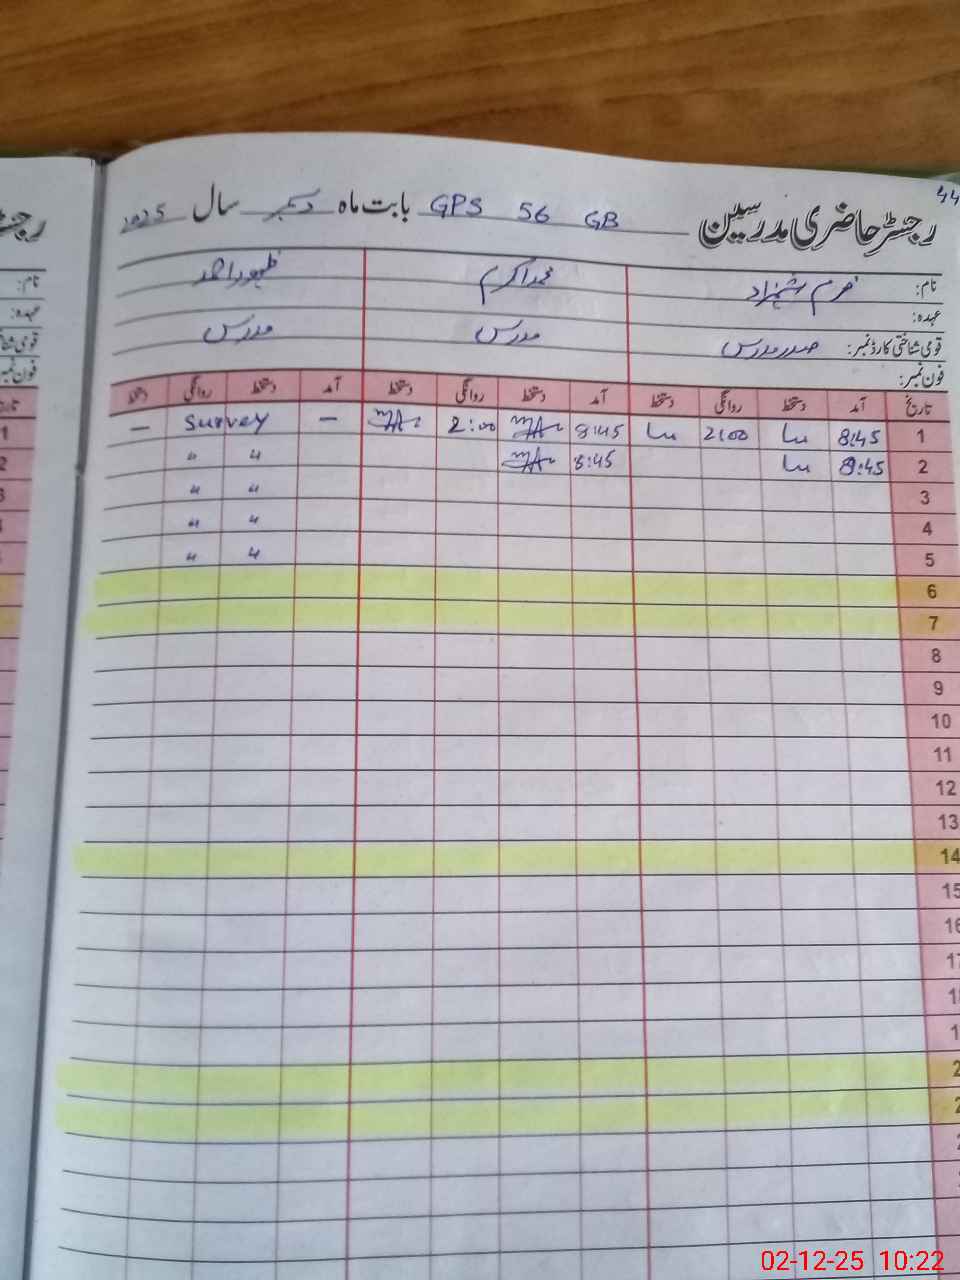 44
رجسٹر حاضری مدرسین GPS 56 GB بابت ماہ دسمبر سال 2025
نام: خرم شہزاد محمد اکرم ظہور احمد
عہدہ:
قومی شناختی کارڈ نمبر: صدر مدرس مدرس مدرس
فون نمبر:
تاریخ آمد دستخط روانگی دستخط آمد دستخط روانگی دستخط آمد دستخط روانگی دستخط
1 8:45 2:00 8:45 2:00 — survey —
2 8:45 8:45 " "
3 " "
4 " "
5 " "
6
7
8
9
10
11
12
13
14
15
16
02-12-25 10:22